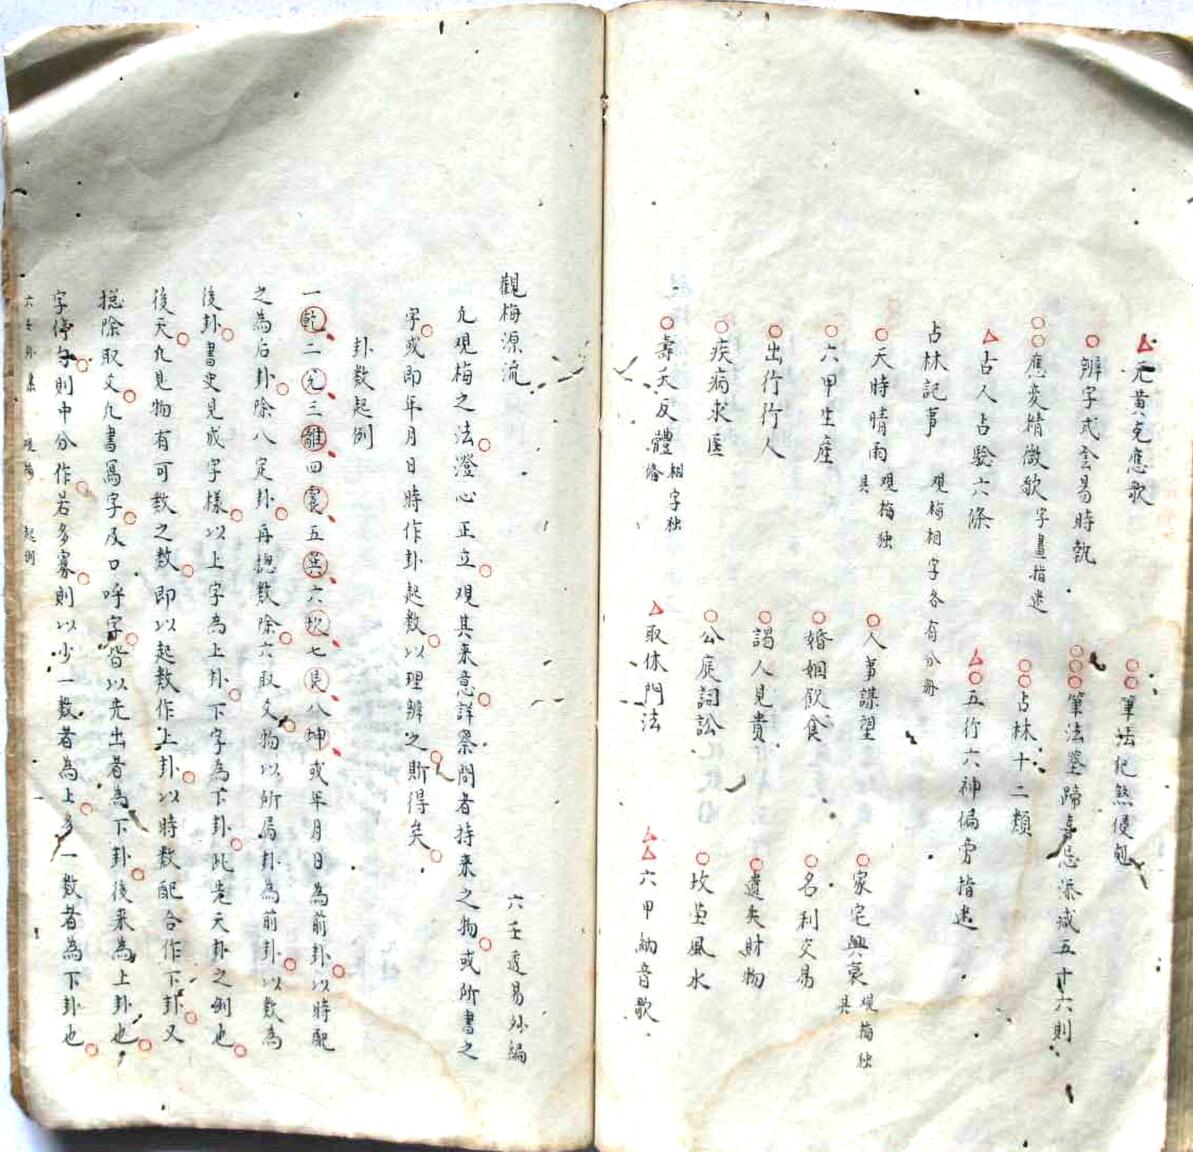 元黃克應歌　筆法犯煞侵剋
辨字式玄易時執　筆法鑒蹄喜忌添減五十六則
應变精微歌 字畫指迷　占林十二類
占人占驗六條　五行六神偏旁指迷
占林記事 观梅相字各有分册
天時晴雨 观梅独具　人事謀望　家宅興衰 观梅独具
六甲生産　婚姻飲食　名利交易
出行行人　謁人見貴　遺失財物
疾病求医　公庭詞訟　坟茔風水
壽夭反體 相字独俻　取休門法　六甲納音歌
觀梅源流　六壬透易外編
凢观梅之法澄心正立观其来意詳察問者持来之物或所書之
字或即年月日時作卦起数以理辨之斯得矣
卦数起例
一乾二兌三離四震五巽六坎七艮八坤或年月日為前卦以時配
之為后卦除八定卦再摠数除六取爻物以所局卦為前卦以数為
後卦書史見成字樣以上字為上卦下字為下卦此先天卦之例也
後天凢見物有可数之数即以起数作上卦以時数配合作下卦又
摠除取爻凢書寫字及口呼字皆以先出者為下卦後来為上卦也
字停匀則中分作若多寡則以少一数者為上多一数者為下卦也
六壬外禀　观梅　起例